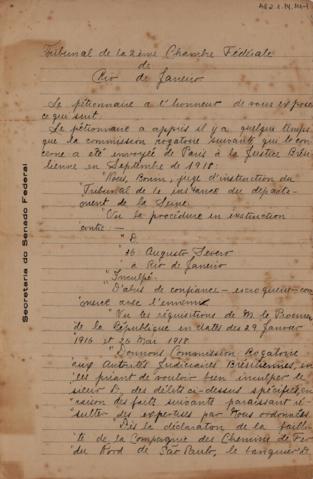 Tribunal de la 2ème Chambre Fédérale
de
Rio de Janeiro
Le pétionnaire a l'honneur de vous expose
ce qui suit.
Le pétionnaire a appris il y a quelque temps
que la commission rogatoire suivante qui le con-
cerne a été envoyée de Paris à la Justice Brési-
lienne en Septembre de 1918:
"Nous, juge d'instruction du
"Tribunal de 1e instance du départe-
"ment de la Seine
"Vu la procédure en instruction
contre —
"D.
"26 Augusto Severo
"à Rio de Janeiro
"Inculpé.
"D'abus de confiance — escroquerie — com-
merce avec l'ennemi
"Vu les réquisitions de M. le Procureur
de la République en dates des 29 Janvier
1916 et 26 Mai 1918.
"Donnons Commission Rogatoire
"aux Autorités Judiciaires Brésiliennes,
"les priant de vouloir bien inculper le
"sieur D. des délits ci-dessus spécifiés, en
"raison des faits suivants paraissant ré-
"sulter des expertises par nous ordonnées.
"Dès la déclaration de la failli-
"te de la Compagnie des Chemins de Fer
"du Nord de São Paulo, le banquier D.
Secretaria do Senado Federal